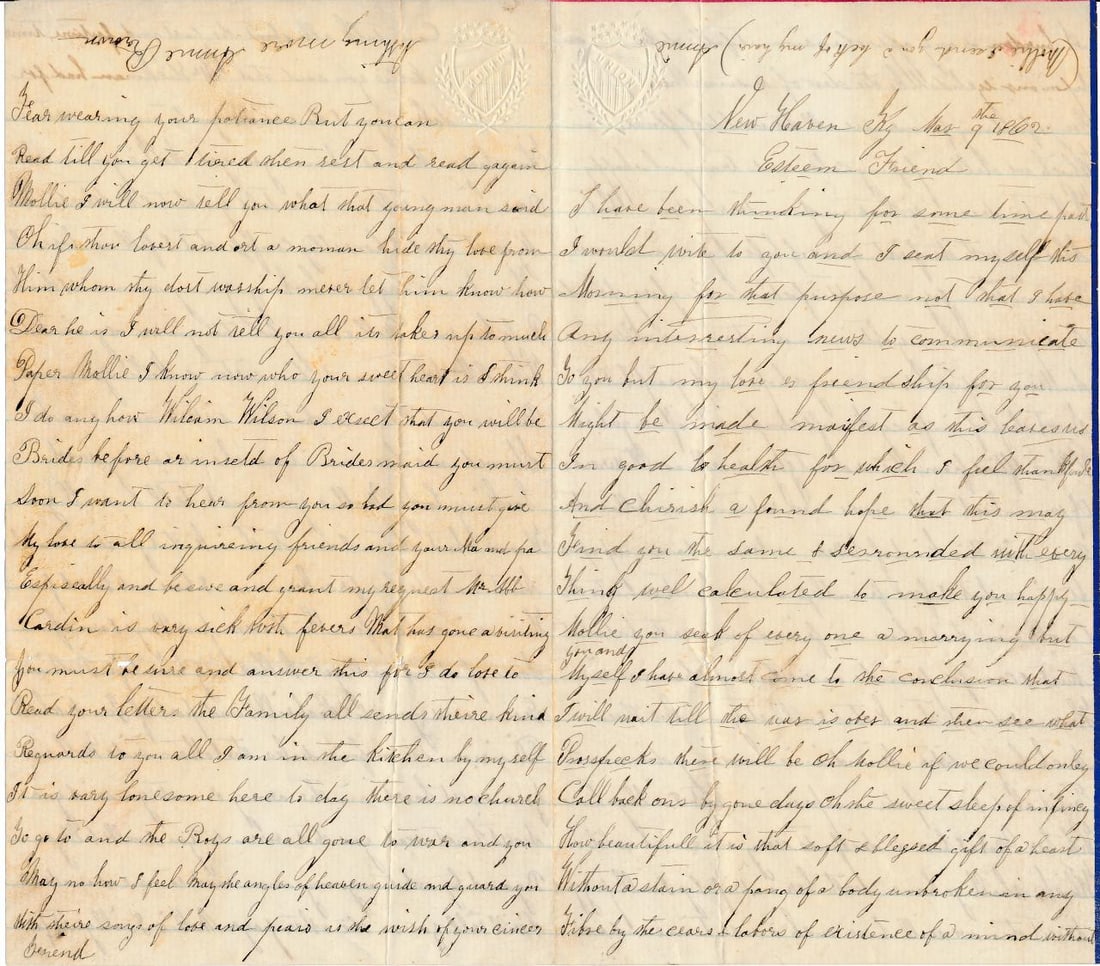 (Mollie I send you a lock of my hair) Annie
New Haven Ky Mar the 9 1862
Esteem Friend
I have been thinking for some time past
I would write to you and I seat myself this
Morning for that purpose not that I have
Any interesting news to communicate
To you but my love & friendship for you
Might be made maifest as this leaves us
In good health for which I feel thankful
And Chirish a found hope that this may
Find you the same & serrounded with every
Thing wel calculated to make you happy
Mollie you seak of every one a marrying but
you and
Myself I have almost come to the conclusion that
I will wait till the war is over and then see what
Prospecks there will be Oh Mollie if we could onley
Call back ons by gone days Oh the sweet sleep of infincy
How beautifull it is that soft & blessed gift of a heart
Without a stain or a pang of a body unbroken in any
Fibre by the cears & labors of existence of a mind without
Fear wearing your patiance But you can
Read till you get tired then rest and read gagain
Mollie I will now tell you what that young man said
Oh if thou lovest and art a woman hide thy love from
Him whom thy dost worship never let him know how
Dear he is I will not tell you all its takes up to much
Paper Mollie I know now who your sweet heart is I think
I do any how Wilson I exsect that you will be
Brides before or insetd of Brides maid you must
Soon I want to hear from you so bad you must give
My love to all inquireing friends and your Ma and pa
Espiseally and be sure and grant my request Mr Mc
Cardin is vary sick with fevers Mat has gone a visiting
You must be sure and answer this for I do love to
Read your letters the Family all sends theire kind
Reguards to you all I am in the kitchen by my self
It is vary lonesome here to day there is no church
To go to and the Boys are all gone to war and you
May no how I feel May the angles of heaven guide and guard you
With theire songs of love and peais is the wish of your cincer
Freiend
Nothing more Annie Brown